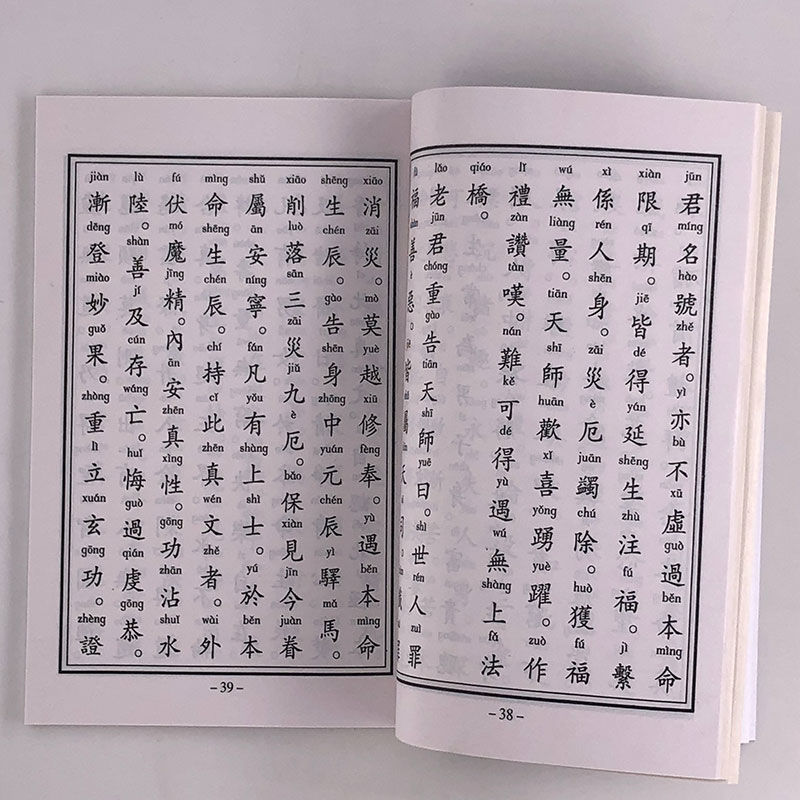 jūn 君 míng 名 hào 號 zhě 者。 yì 亦 bù 不 xū 虛 guò 過 běn 本 mìng 命
xiàn 限 qī 期。 jiē 皆 dé 得 yán 延 shēng 生 zhù 注 fú 福。 jì 繫
xì 係 rén 人 shēn 身。 zāi 災 è 厄 juān 蠲 chú 除。 huò 獲 fú 福
wú 無 liàng 量。 tiān 天 shī 師 huān 歡 xǐ 喜 yǒng 踴 yuè 躍。 zuò 作
lǐ 禮 zàn 讚 tàn 嘆。 nán 難 kě 可 dé 得 yù 遇 wú 無 shàng 上 fǎ 法
qiáo 橋。
lǎo 老 jūn 君 chóng 重 gào 告 tiān 天 shī 師 yuē 曰。 shì 世 rén 人 zuì 罪
福 善 惡。 皆 屬
– 38 –
xiāo 消 zāi 災。 mò 莫 yuè 越 xiū 修 fèng 奉。 yù 遇 běn 本 mìng 命
shēng 生 chén 辰。 gào 告 shēn 身 zhōng 中 yuán 元 chén 辰 yì 驛 mǎ 馬。
xiāo 削 luò 落 sān 三 zāi 災 jiǔ 九 è 厄。 bǎo 保 xiàn 見 jīn 今 juàn 眷
shǔ 屬 ān 安 níng 寧。 fán 凡 yǒu 有 shàng 上 shì 士。 yú 於 běn 本
mìng 命 shēng 生 chén 辰。 chí 持 cǐ 此 zhēn 真 wén 文 zhě 者。 wài 外
fú 伏 mó 魔 jīng 精。 內 ān 安 zhēn 真 xìng 性。 gōng 功 zhān 沾 shuǐ 水
lù 陸。 shàn 善 jí 及 cún 存 wáng 亡。 huǐ 悔 guò 過 qián 虔 gōng 恭。
jiàn 漸 dēng 登 miào 妙 guǒ 果。 zhòng 重 lì 立 xuán 玄 gōng 功。 zhèng 證
– 39 –